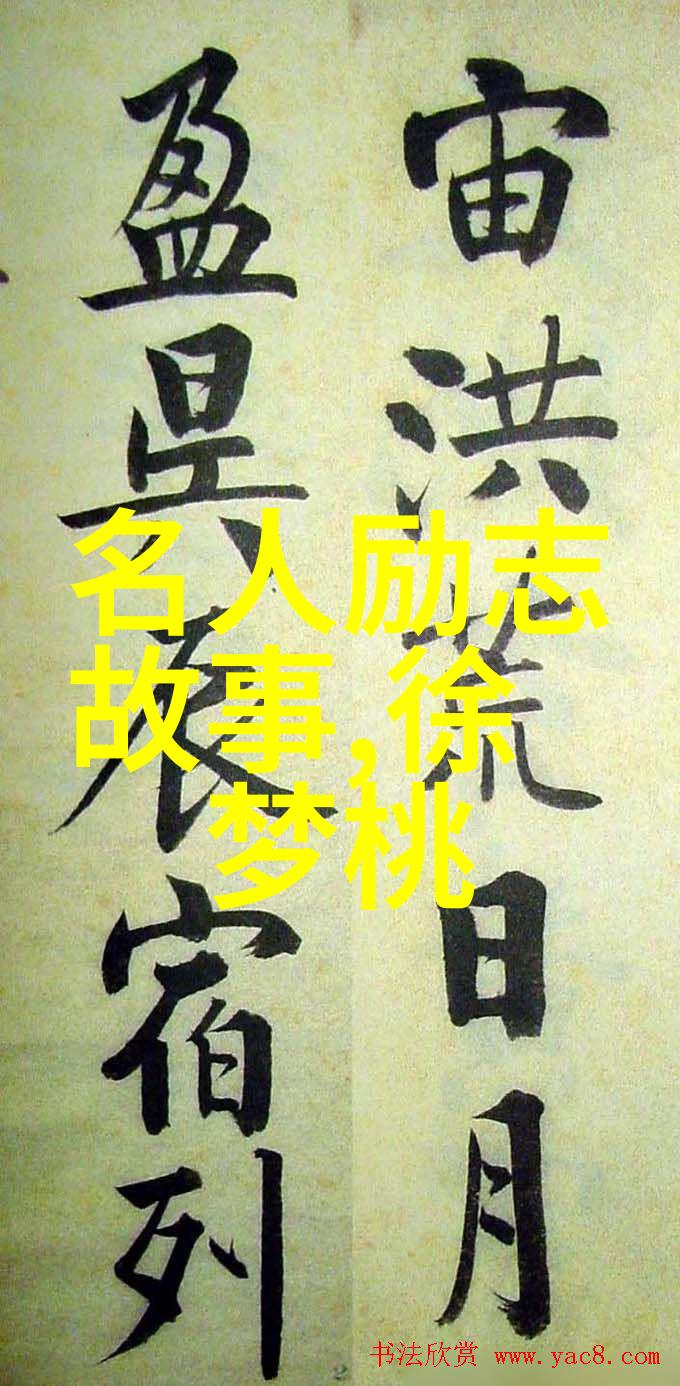 宙洪荒日月
盈昃辰宿列
名人励志
故事,徐
梦桃
书法欣赏 www.yac8.com